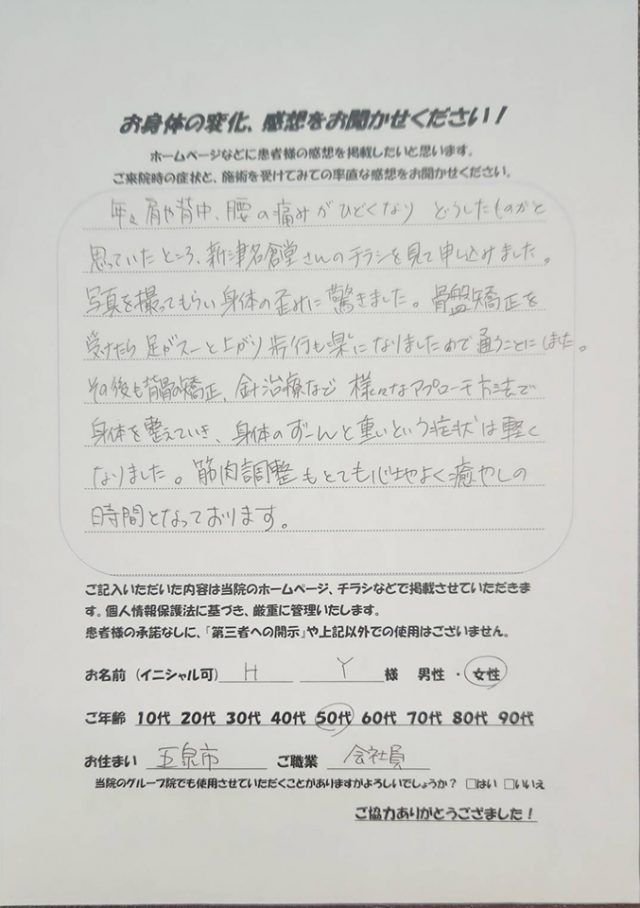 お身体の変化、感想をお聞かせください！
ホームページなどに患者様の感想を掲載したいと思います。
ご来院時の症状と、施術を受けてみての率直な感想をお聞かせください。
年々肩や背中、腰の痛みがひどくなり どうしたものかと
思っていたところ、新津名倉堂さんのチラシを見て申し込みました。
写真を撮ってもらい身体の歪みに驚きました。骨盤矯正を
受けたら足がスーと上がり歩行も楽になりましたので通うことにしました。
その後も背骨の矯正、針治療など 様々なアプローチ方法で
身体を整えていき、身体のずーんと重いという症状は軽く
なりました。筋肉調整もとても心地よく癒やしの
時間となっております。
ご記入いただいた内容は当院のホームページ、チラシなどで掲載させていただきま
す。個人情報保護法に基づき、厳重に管理いたします。
患者様の承諾なしに、「第三者への開示」や上記以外での使用はございません。
お名前（イニシャル可） H Y 様 男性 ・ 女性
ご年齢 10代 20代 30代 40代 50代 60代 70代 80代 90代
お住まい 五泉市 ご職業 会社員
当院のグループ院でも使用させていただくことがありますがよろしいでしょうか？ □はい □いいえ
ご協力ありがとうござました！